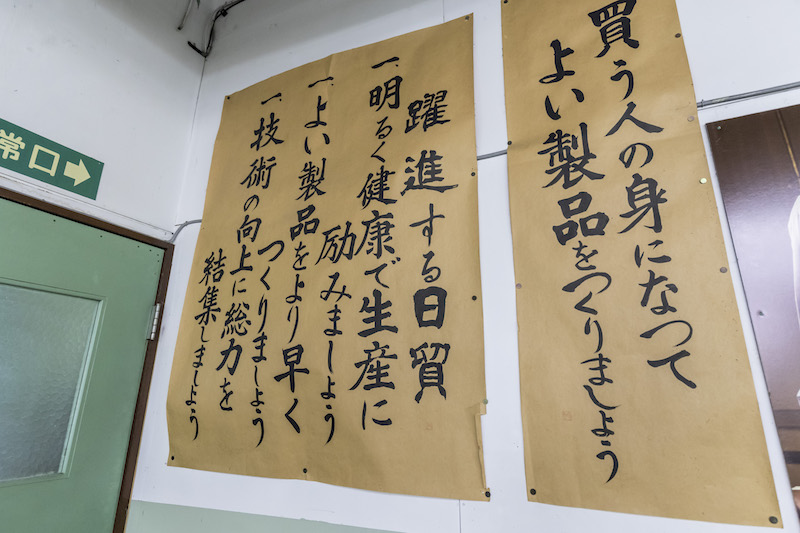 買う人の身になって
よい製品をつくりましょう
躍進する日貿
一、明るく健康で生産に
励みましょう
一、よい製品をより早く
つくりましょう
一、技術の向上に総力を
結集しましょう
常口